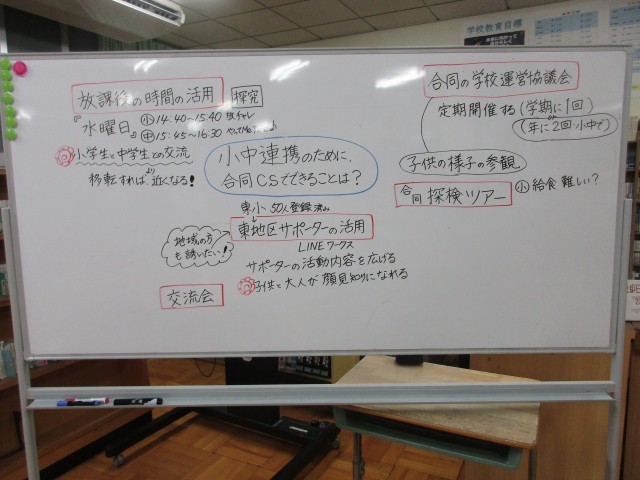 学校教育目標
放課後の時間の活用 探究
『水曜日』 小 14:40〜15:40 放チャレ
中 15:45〜16:30
小学生と中学生との交流
移転すればより近くなる!
小中連携のために、
合同CSでできることは?
合同の学校運営協議会
定期開催する(学期に1回)
(年に2回 小中で)
子供の様子の参観
合同 探検ツアー 小 給食 難しい?
東小 50人登録済み
東地区サポーターの活用
LINEワークス
地域の方
も誘いたい!
サポーターの活動内容を広げる
子供と大人が顔見知りになれる
交流会